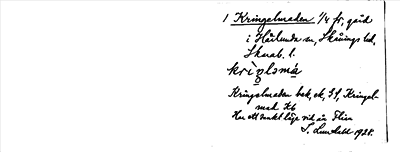 1 Kringelmaden 1/4 fr, gård
i Härlunda sn, Skånings hd,
Skarab. l.
Kringelmaden bek, ek, Gf, Kringel-
mad Hb
Har ett enkt läge vid ån Flian
S. Lundahl 1928.